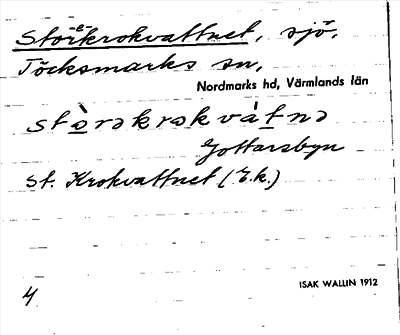 Storekrokvattnet, sjö,
Töcksmarks sn,
Nordmarks hd, Värmlands län
stòrəkrokvátnə
Gottarsbyn
St. Krokvattnet (E.k.)
4
ISAK WALLIN 1912